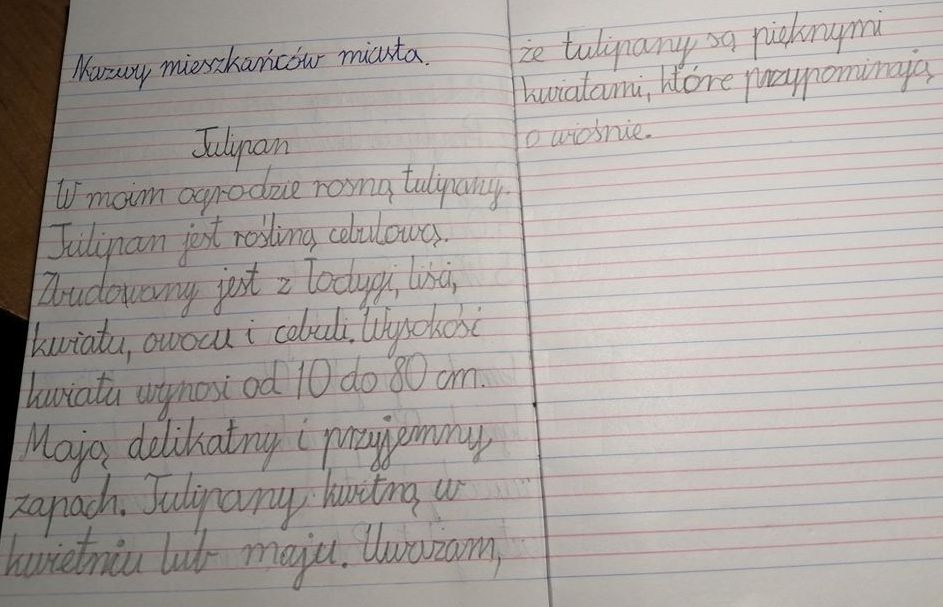 Nazwy mieszkańców miasta.
Tulipan
W moim ogrodzie rosną tulipany.
Tulipan jest rośliną cebulową.
Zbudowany jest z łodygi, liści,
kwiatu, owocu i cebuli. Wysokość
kwiatu wynosi od 10 do 80 cm.
Mają delikatny i przyjemny
zapach. Tulipany kwitną w
kwietniu lub maju. Uważam,
że tulipany są pięknymi
kwiatami, które przypominają
o wiośnie.